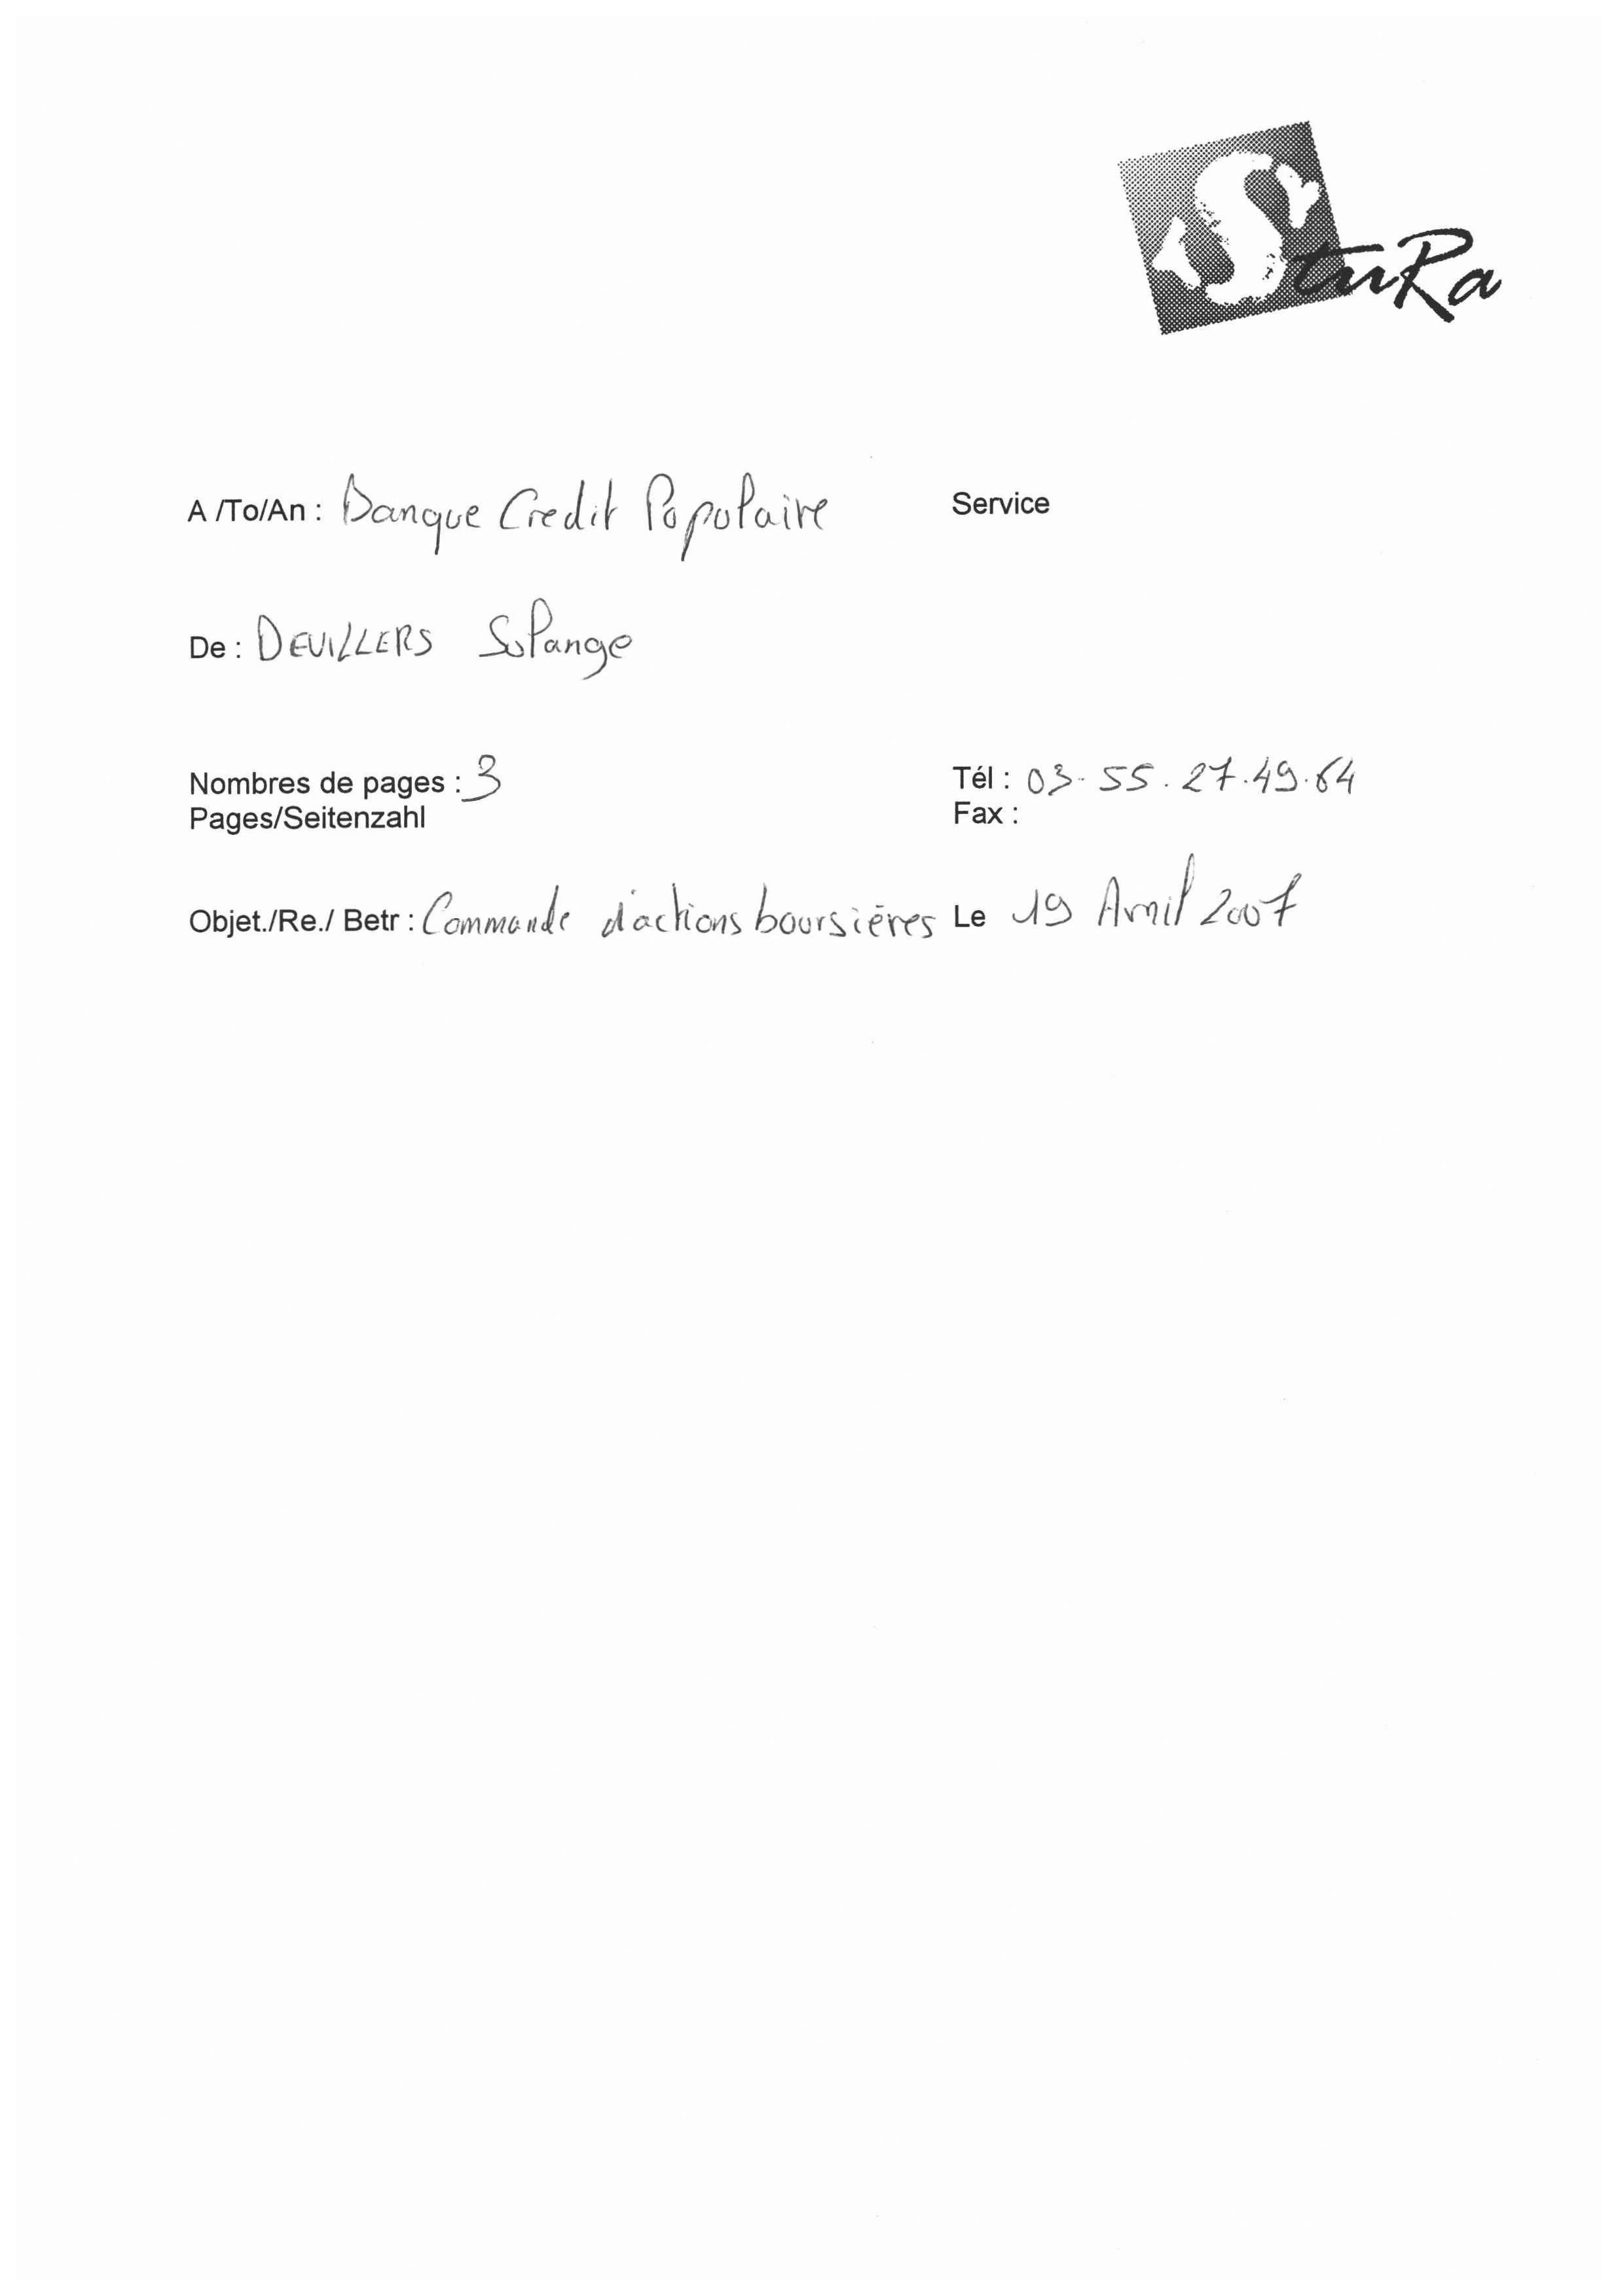 StuRa
A /To/An : Banque Credit Populaire Service
De : DEVILLERS Solange
Nombres de pages : 3 Tél : 03.55.27.49.64
Pages/Seitenzahl Fax :
Objet./Re./ Betr : Commande d'actions boursières Le 19 Avril 2007